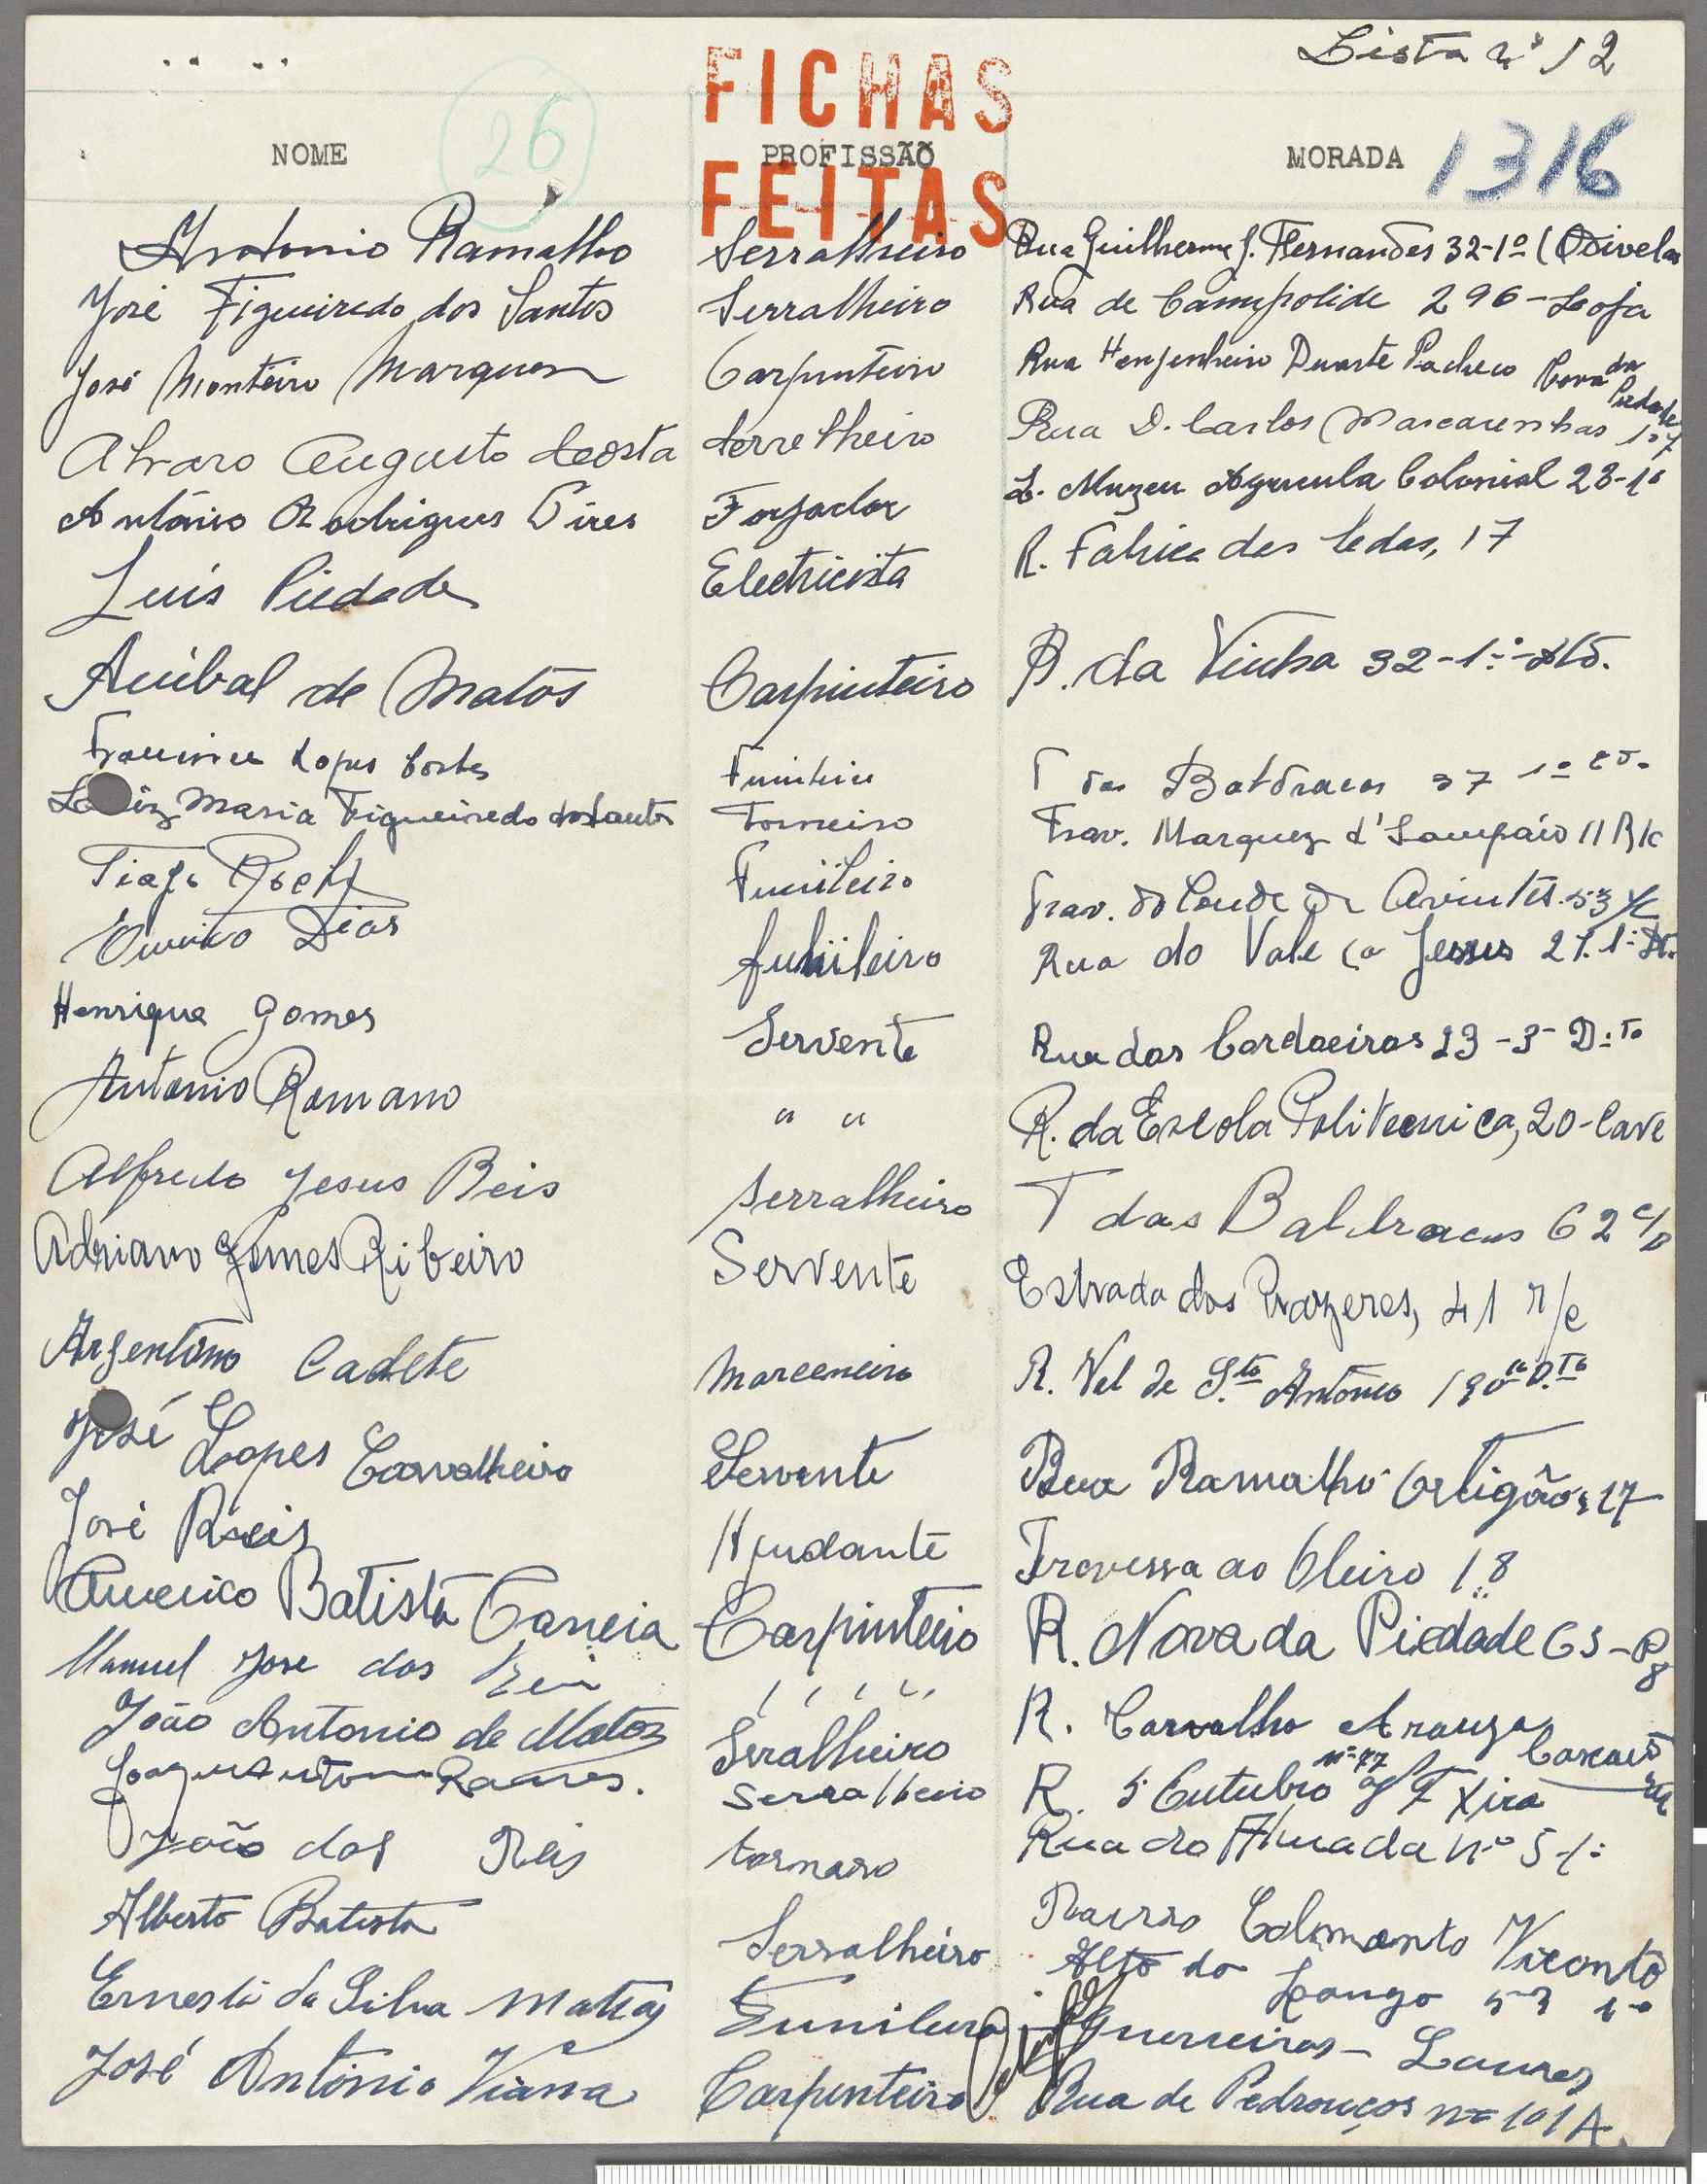 Lista nº 12
FICHAS
26
NOME PROFISSÃO MORADA 1316
FEITAS
Antonio Ramalho Serralheiro Rua Guilherme G. Fernandes 32-1º (Odivelas
José Figueiredo dos Santos Serralheiro Rua de Campolide 296-Loja
José Monteiro Marques Carpinteiro Rua Hengenheiro Duarte Pacheco Cova da Piedade
Alvaro Augusto Costa Serrelheiro Rua D. Carlos Mascarenhas 107
António Rodrigues Pires Forjador L. Muzeu Agricula Colonial 28-1º
Luís Piedade Electricista R. Fabrica das Sedas, 17
Aníbal de Matos Carpinteiro R. da Vinha 32-1º-
Francisco Lopes Funileiro T das 37 1º
Luiz Maria Figueiredo dos Santos Torneiro Trav. Marquez d'Sampáio 11 R/c
Tiago Funileiro Trav. do Conde de Avintes 53
Dias funileiro Rua do Vale Jesus 21.1º
Henrique Gomes Servente Rua das Cardoeiras 23-3- D.to
Antonio Romano " " R. da Escola Politecnica, 20-Cave
Alfredo Jesus Reis Serralheiro T das 62 c/
Adriano Gomes Ribeiro Servente Estrada dos Prazeres, 41 r/c
Argentino Cadete Marceneiro R. Val de S.to António
José Lopes Carvalheiro Servente Rua Ramalho Ortigão, 17
José Reis Ajudante Travessa ao Oleiro 18
Americo Batista Carpinteiro R. Nova da Piedade 65-
Manuel Jose dos Reis , , , , R. Carvalho Araujo Cascais
João Antonio de Matos Seralheiro R. 5 Outubro nº 77 Xira
Ramos. Serralheiro Rua do Almada nº 5 1º
João dos Reis tornaro Bairro
Alberto Batista Serralheiro Alto do Longo 53 1º
Ernesto da Silva Matias Funileiro Guerreiros - Loures
José António Viana Carpinteiro Rua de Pedrouços nº 101 A